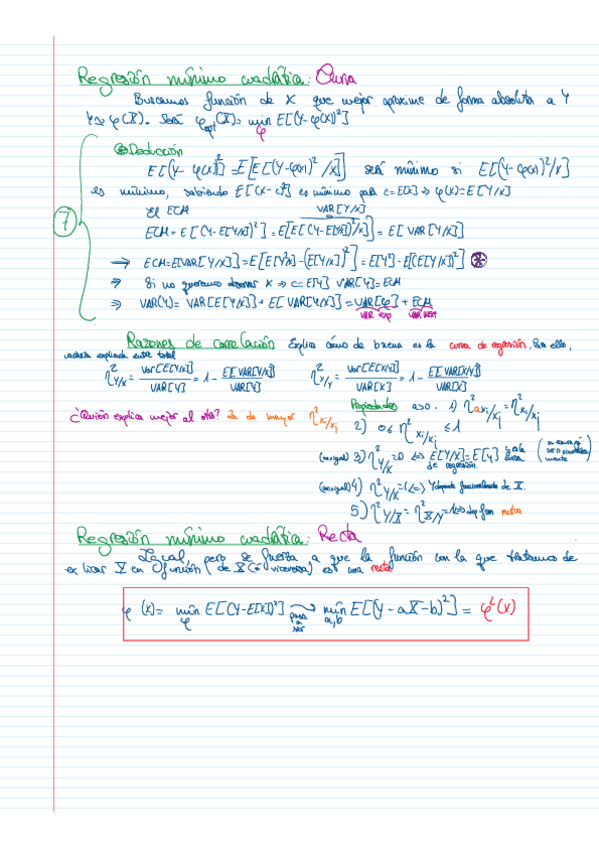 Regresión mínimo cuadrática: Curva
Buscamos función de X que mejor aproxime de forma absoluta a Y
Y≈φ(X). Será φopt(X)= min_φ E[(Y-φ(X))²]
Deducción
E[(Y-φ(X))²] = E[E[(Y-φ(X))²/X]] será mínimo si E[(Y-φ(X))²/X]
es mínimo, sabiendo E[(X-c)²] es mínimo para c=E[X] ⇒ φ(X)=E[Y/X]
El ECM VAR[Y/X]
ECM = E[(Y-E[Y/X])²] = E[E[(Y-E[Y/X])²/X]] = E[VAR[Y/X]]
7
→ ECM=E[VAR[Y/X]] = E[E[Y²/X]-(E[Y/X])²] = E[Y²]-E[(E[Y/X])²] ⊛
⇒ Si no queremos observar X → c=E[Y] VAR[Y]=ECM
⇒ VAR(Y)= VAR[E[Y/X]]+E[VAR[Y/X]] = VAR[φ]+ECM
VAR exp VAR resid
Razones de correlación Explica cómo de buena es la curva de regresión. Para ello,
varianza explicada entre total
η²Y/X = Var[E[Y/X]]/VAR[Y] = 1 - E[VAR[Y/X]]/VAR[Y] η²X/Y = Var[E[X/Y]]/VAR[X] = 1 - E[VAR[X/Y]]/VAR[X]
¿Quién explica mejor al otro? La de mayor η²xi/xj
Propiedades a≠0. 1) η²axi/xj = η²xi/xj
2) 0≤η²xi/xj ≤1
3) η²Y/X=0 ⇔ E[Y/X]=E[Y]
de regresión
4) η²Y/X=1⇔ Y depende funcionalmente de X.
5) η²Y/X = η²X/Y =1⇔
Regresión mínimo cuadrática: Recta
Igual, pero se fuerza a que la función con la que tratamos de
explicar Y en función de X (ó viceversa) es una recta
φ(X)= min_φ E[(Y-E[X])²] pasa a ser min_a,b E[(Y-aX-b)²] = φᴸ(X)